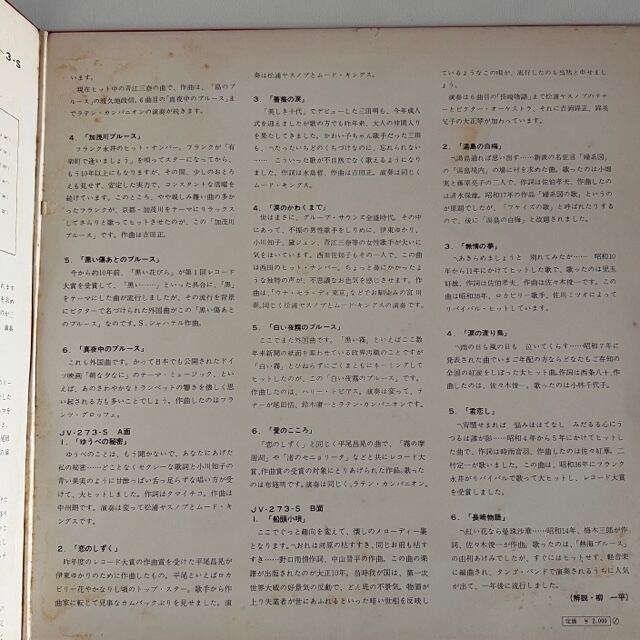 -3-S
います。
現在ヒット中の青江三奈の曲で、作曲は、「島のブ
ルース」の渡久地政信。6曲目の「真夜中のブルース」ま
でラテン・カンパニオンの演奏が続きます。
4. 「加茂川ブルース」
フランク永井のヒット・ナンバー。フランクが「有
楽町で逢いましょう」を唄ってスターになってから、
もう10年以上にもなりますが、その間、少しのおとろ
えも見せず、安定した実力で、コンスタントな活躍を
続けています。このところ、やや親しみ難い曲の多か
ったフランクが、京都・加茂川をテーマにリラックス
してさらりと歌ってヒットさせたのが、この「加茂川
ブルース」です。作曲は吉田正。
5. 「黒い傷あとのブルース」
今から約10年前、「黒い花びら」が第1回レコード
大賞を受賞して、「黒い……」といった具合に、「黒」
をテーマにした曲が流行しましたが、その流行を背景
にビクターで名づけられた外国曲がこの「黒い傷あと
のブルース」なのです。S.シャハテル作曲。
6. 「真夜中のブルース」
これも外国曲です。かつて日本でも公開されたドイ
ツ映画「朝な夕なに」のテーマ・ミュージック、とい
えば、あのさわやかなトランペットの響きを懐しく思
い起される方も多いことでしょう。作曲したのはフラ
ンツ・グロッフェ。
JV-273-S A面
1. 「ゆうべの秘密」
ゆうべのことは、もう聞かないで、あなたにあげた
私の秘密……どことなくセクシーな歌詞と小川知子の
青い果実のように甘酸っぱい舌っ足らずな唱い方が受
けて、大ヒットしました。作詞はタマイチコ。作曲は
中州朗です。演奏は変って松浦ヤスノブとムード・キ
ングスです。
2. 「恋のしずく」
昨年度のレコード大賞の作曲賞を受けた平尾昌晃が
伊東ゆかりのために作曲したもの。平尾といえばロカ
ビリー花やかなりし頃のトップ・スター。歌手から作
曲家に転じて見事なカムバックぶりを見せました。演
奏は松浦ヤスノブとムード・キングス。
3. 「薔薇の涙」
「美しき十代」でデビューした三田明も、今年成人
式を迎えましたが歌の方でも昨年来、大人の仲間入り
を果たしてきました。かわいい子ちゃん歌手だった三田
も、へたったいちどのくちづけなのに、忘れられない
……　こういった歌が不自然でなく歌えるようになり
ました。作詞は水島哲、作曲は吉田正。演奏は同じく
ムード・キングス。
4. 「涙のかわくまで」
世はまさに、グループ・サウンズ全盛時代。その中
にあって、不振の男性歌手をしりめに、伊東ゆかり、
小川知子、黛ジュン、青江三奈等の女性歌手が大いに
気をはいています。西田佐知子もその一人で、この曲
は西田のヒット・ナンバー。ちょっと鼻にかかったよ
うな独特の声が、不思議なお色気を感じさせます。作
曲は、「ウナ・セラ・ディ東京」などでお馴染みの宮川
泰。同じく松浦ヤスノブとムード・キングスの演奏です。
5. 「白い夜霧のブルース」
ここでまた外国曲です。「黒い霧」といえばここ数
年来新聞の紙面を賑わせている政界汚職のことですが
「白い霧」とひねらずにごくまともにネーミングして
ヒットしたのが、この「白い夜霧のブルース」です。
作曲したのは、ハリー・トビアス。演奏は変って、テ
ナーが尾田悟、鈴木庸一とラテン・カンパニオンです。
6. 「愛のこころ」
「恋のしずく」と同じく平尾昌晃の曲で、「霧の摩
周湖」や「渚のセニョリータ」などと共にレコード大
賞、作曲賞の受賞の対象にとりあげられた作品。歌った
のは布施明です。演奏は同じく、ラテン・カンパニオン。
JV-273-S B面
1. 「船頭小唄」
ここでぐっと趣向を変えて、懐しのメロディー集
となります。へおれは河原の枯すすき、同じお前も枯す
すき……野口雨情作詞、中山晋平の作曲。この曲の楽
譜が出版されたのが大正10年。当時我が国は、第一次
世界大戦の好景気の反動で、どん底の不景気。物価が
上り失業者が世にあふれるといった暗い世相を反映し
ているようなこの唄が、流行したのも当然と申せまし
ょう。
演奏は6曲目の「長崎物語」まで松浦ヤスノブのテナ
ーとビクター・オーケストラ、それに吉岡錦正、錦英
父子の大正琴が加わっています。
2. 「湯島の白梅」
へ湯島通れば思い出す……新派の名狂言「婦系図」
の「湯島境内」の場に材を求めた曲。歌ったのは小畑
実と藤原亮子の二人で、作詞は佐伯孝夫、作曲したの
は清水保雄。昭和17年の作品「婦系図の歌」というの
が原題でしたが、「ツヤイズの歌」と呼ばれたりする
ので、後に「湯島の白梅」と改題されました。
3. 「無情の夢」
へあきらめましょうと　別れてみたが……　昭和10
年から11年にかけてヒットした歌で、歌ったのは児玉
好雄。作詞は佐伯孝夫、作曲は佐々木俊一です。この
曲は昭和35年、ロカビリー歌手、佐川ミツオによって
リバイバル・ヒットしています。
4. 「涙の渡り鳥」
へ雨の日も風の日も　泣いてくらす……昭和7年に
発表された曲でいまご年配の方ならどなたもご存知の
全国の紅涙をしぼった大ヒット曲。作詞は西条八十、作
曲したのは、佐々木俊一。歌ったのは小林千代子。
5. 「君恋し」
へ宵闇せまれば　悩みははてなし　みだるる心にう
つるは誰が影……昭和4年から5年にかけてヒットし
た曲で、作詞は時雨音羽。作曲したのは佐々紅華、二
村定一が歌いました。この曲は、昭和36年にフランク
永井がリバイバルで歌って大ヒットし、レコード大賞
を受賞しました。
6. 「長崎物語」
へ紅い花なら曼珠沙華……昭和14年、梅木三郎が作
詞、佐々木俊一が作曲。歌ったのは、「熱海ブルース」
の由利あけみでしたが、すぐにはヒットせず、軽音楽
に編曲され、タンゴ・バンドで演奏されるうちに人気
が出て、一年後に流行しました。
(解説・柳　一平)
定価 ¥2,000